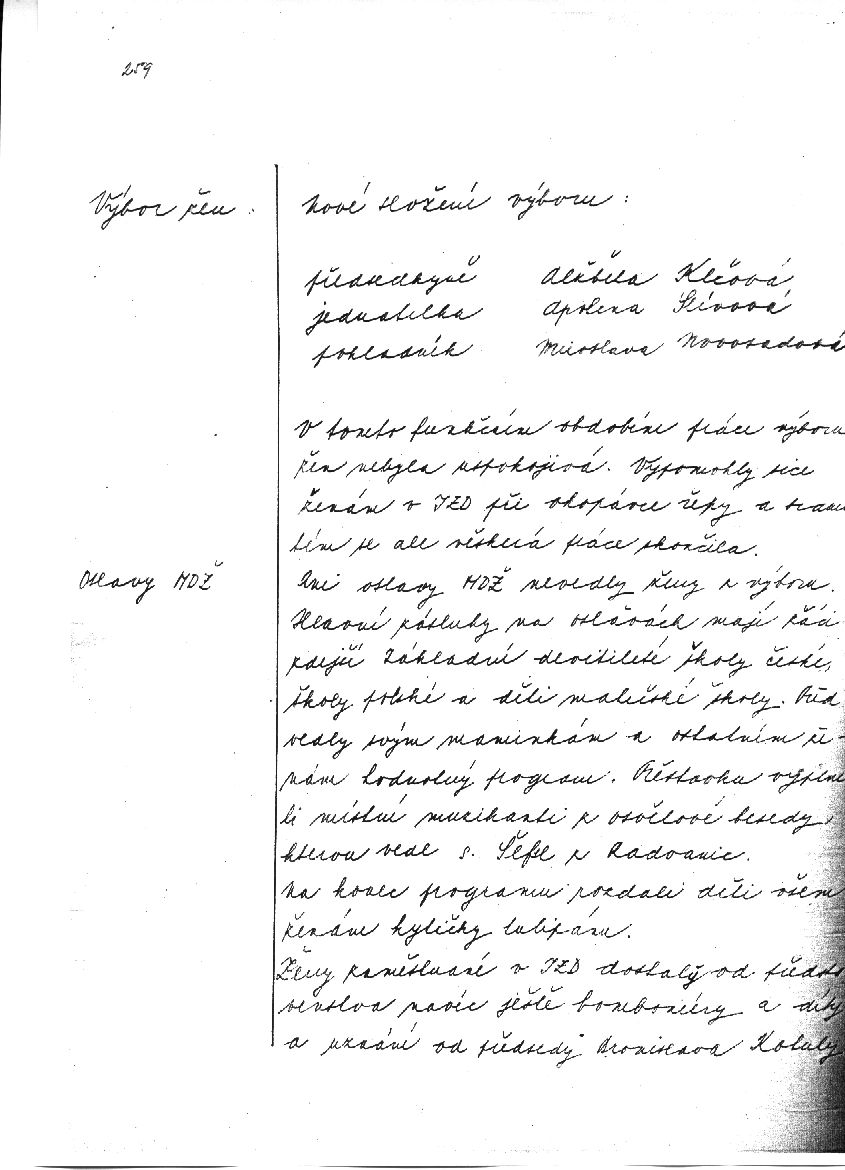 259
Výbor žen :
Nové složení výboru :
předsedkyně Alžběta Klčová
jednatelka Apolena Slívová
pokladník Miroslava Novosadová
V tomto funkčním období práce výboru
žen nebyla uspokojivá. Vypomohly sice
ženám v JZD při okopávce řepy a
tím se ale veškerá práce skončila.
Oslavy MDŽ
Ani oslavy MDŽ nevedly ženy z výboru.
Hlavní zásluhy na oslavách mají žáci
zdejší Základní devítileté školy české,
školy polské a děti mateřské školy. Před
vedly svým maminkám a ostatním že-
nám hodnotný program. Přestávku vyplni
li místní muzikanti z osvětové besedy,
kterou vede s. z Radvanic.
Na konec programu rozdali děti všem
ženám kytičky tulipánu.
Ženy zaměstnané v JZD dostaly od předsta
venstva navíc ještě bomboniéry a díky
a uznání od předsedy Bronislava Kotuly